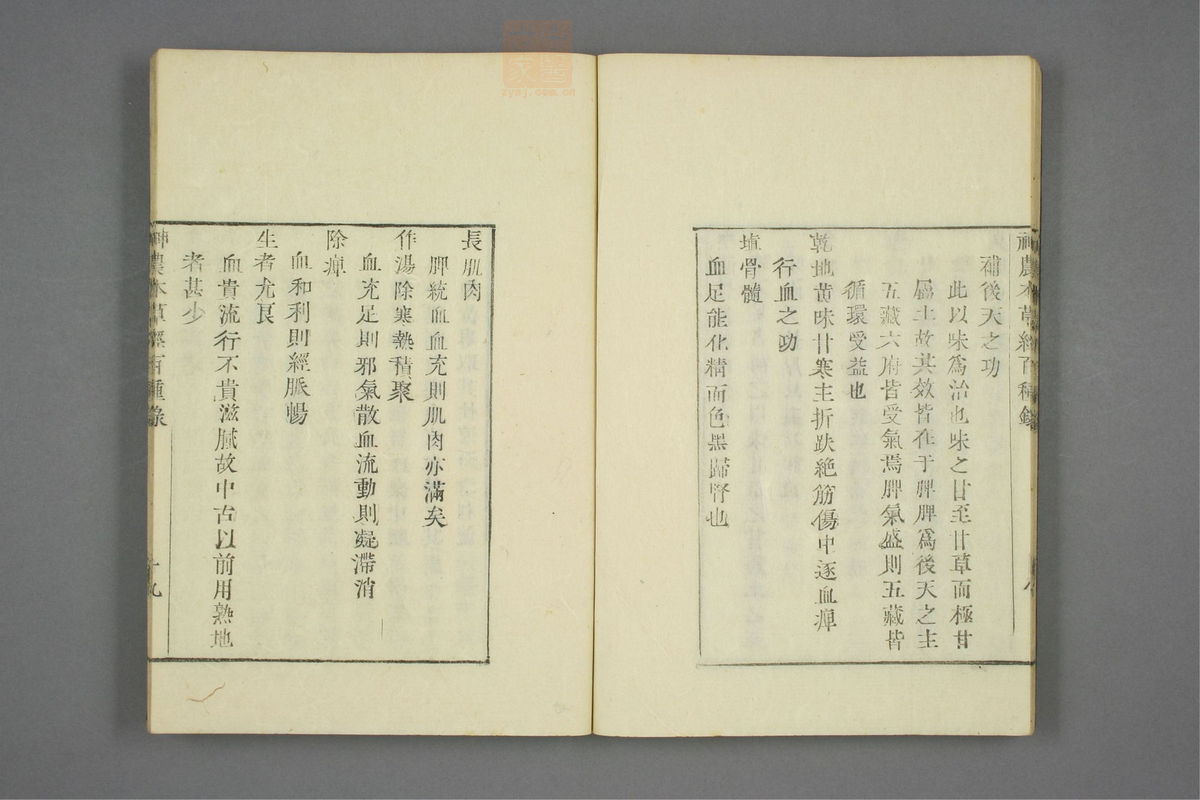 神農本草經百種錄
補後天之功
此以味爲治也味之甘至甘草而極甘
屬土故其效皆在于脾脾爲後天之主
五藏六府皆受氣焉脾氣盛則五藏皆
循環受益也
乾地黄味甘寒主折跌絶筋傷中逐血痺
行血之功
塡骨髓
血足能化精而色黑歸腎也
長肌肉
脾統血血充則肌肉亦滿矣
作湯除寒熱積聚
血充足則邪氣散血流動則凝滯消
除痺
血和利則經脈暢
生者尤良
血貴流行不貴滋膩故中古以前用熟地
者甚少
神農本草經百種錄
十九
zysj.com.cn